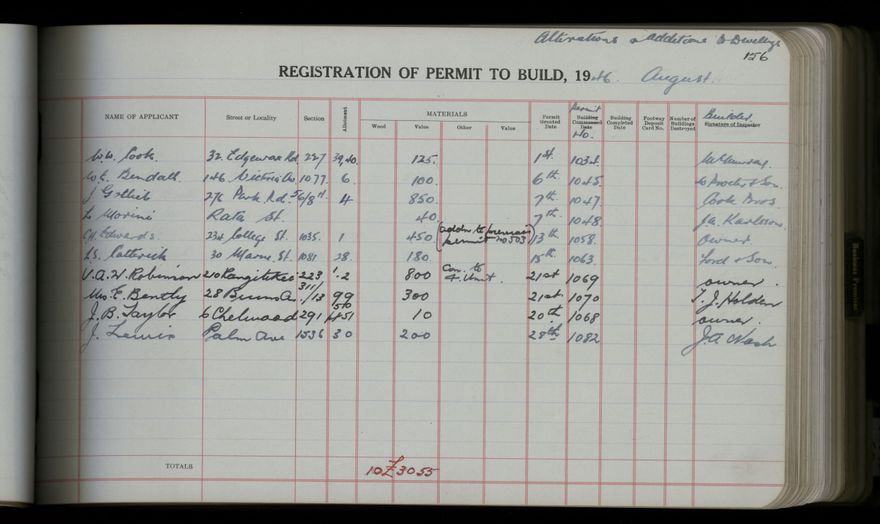 Alterations & Additions to Dwellings
156
REGISTRATION OF PERMIT TO BUILD, 1946. August.
NAME OF APPLICANT Street or Locality Section Allotment MATERIALS Wood Value Other Value Permit Granted Date Permit Building Commenced Date No. Building Completed Date Footway Deposit Card No. Number of Buildings Destroyed Builder Signature of Inspector
W. Cook 32 Edgeware Rd 227 39,40 125. 1st. 1034.
W.E. Bendall 146 Victoria Av 1077. 6. 100. 6th. 1045. & Son.
J 276 Park Rd. 4 850. 7th. 1047. Cook Bros
L Morini Rata St. 40 7th. 1048. Karlsson
Edwards 234 College St. 1035. 1 450 (addn. to previous permit no 503) 13th 1058. owner.
30 St. 1081 28. 180. 15th. 1063. Lord & Son.
V.A.W. Robinson 210 Rangitikei 223 1.2 800 Con. to 21st 1069 owner.
Mrs. E. Bently 28 Burns A. 311/13 99 300 21st 1070 T. J. Holden
J. B. Taylor 6 Chelwood 291 10 20th 1068 owner.
J. Lewis Palm Ave 1536 30 200 28th 1082 J.A Nash
TOTALS 10 £3055
Business Premises